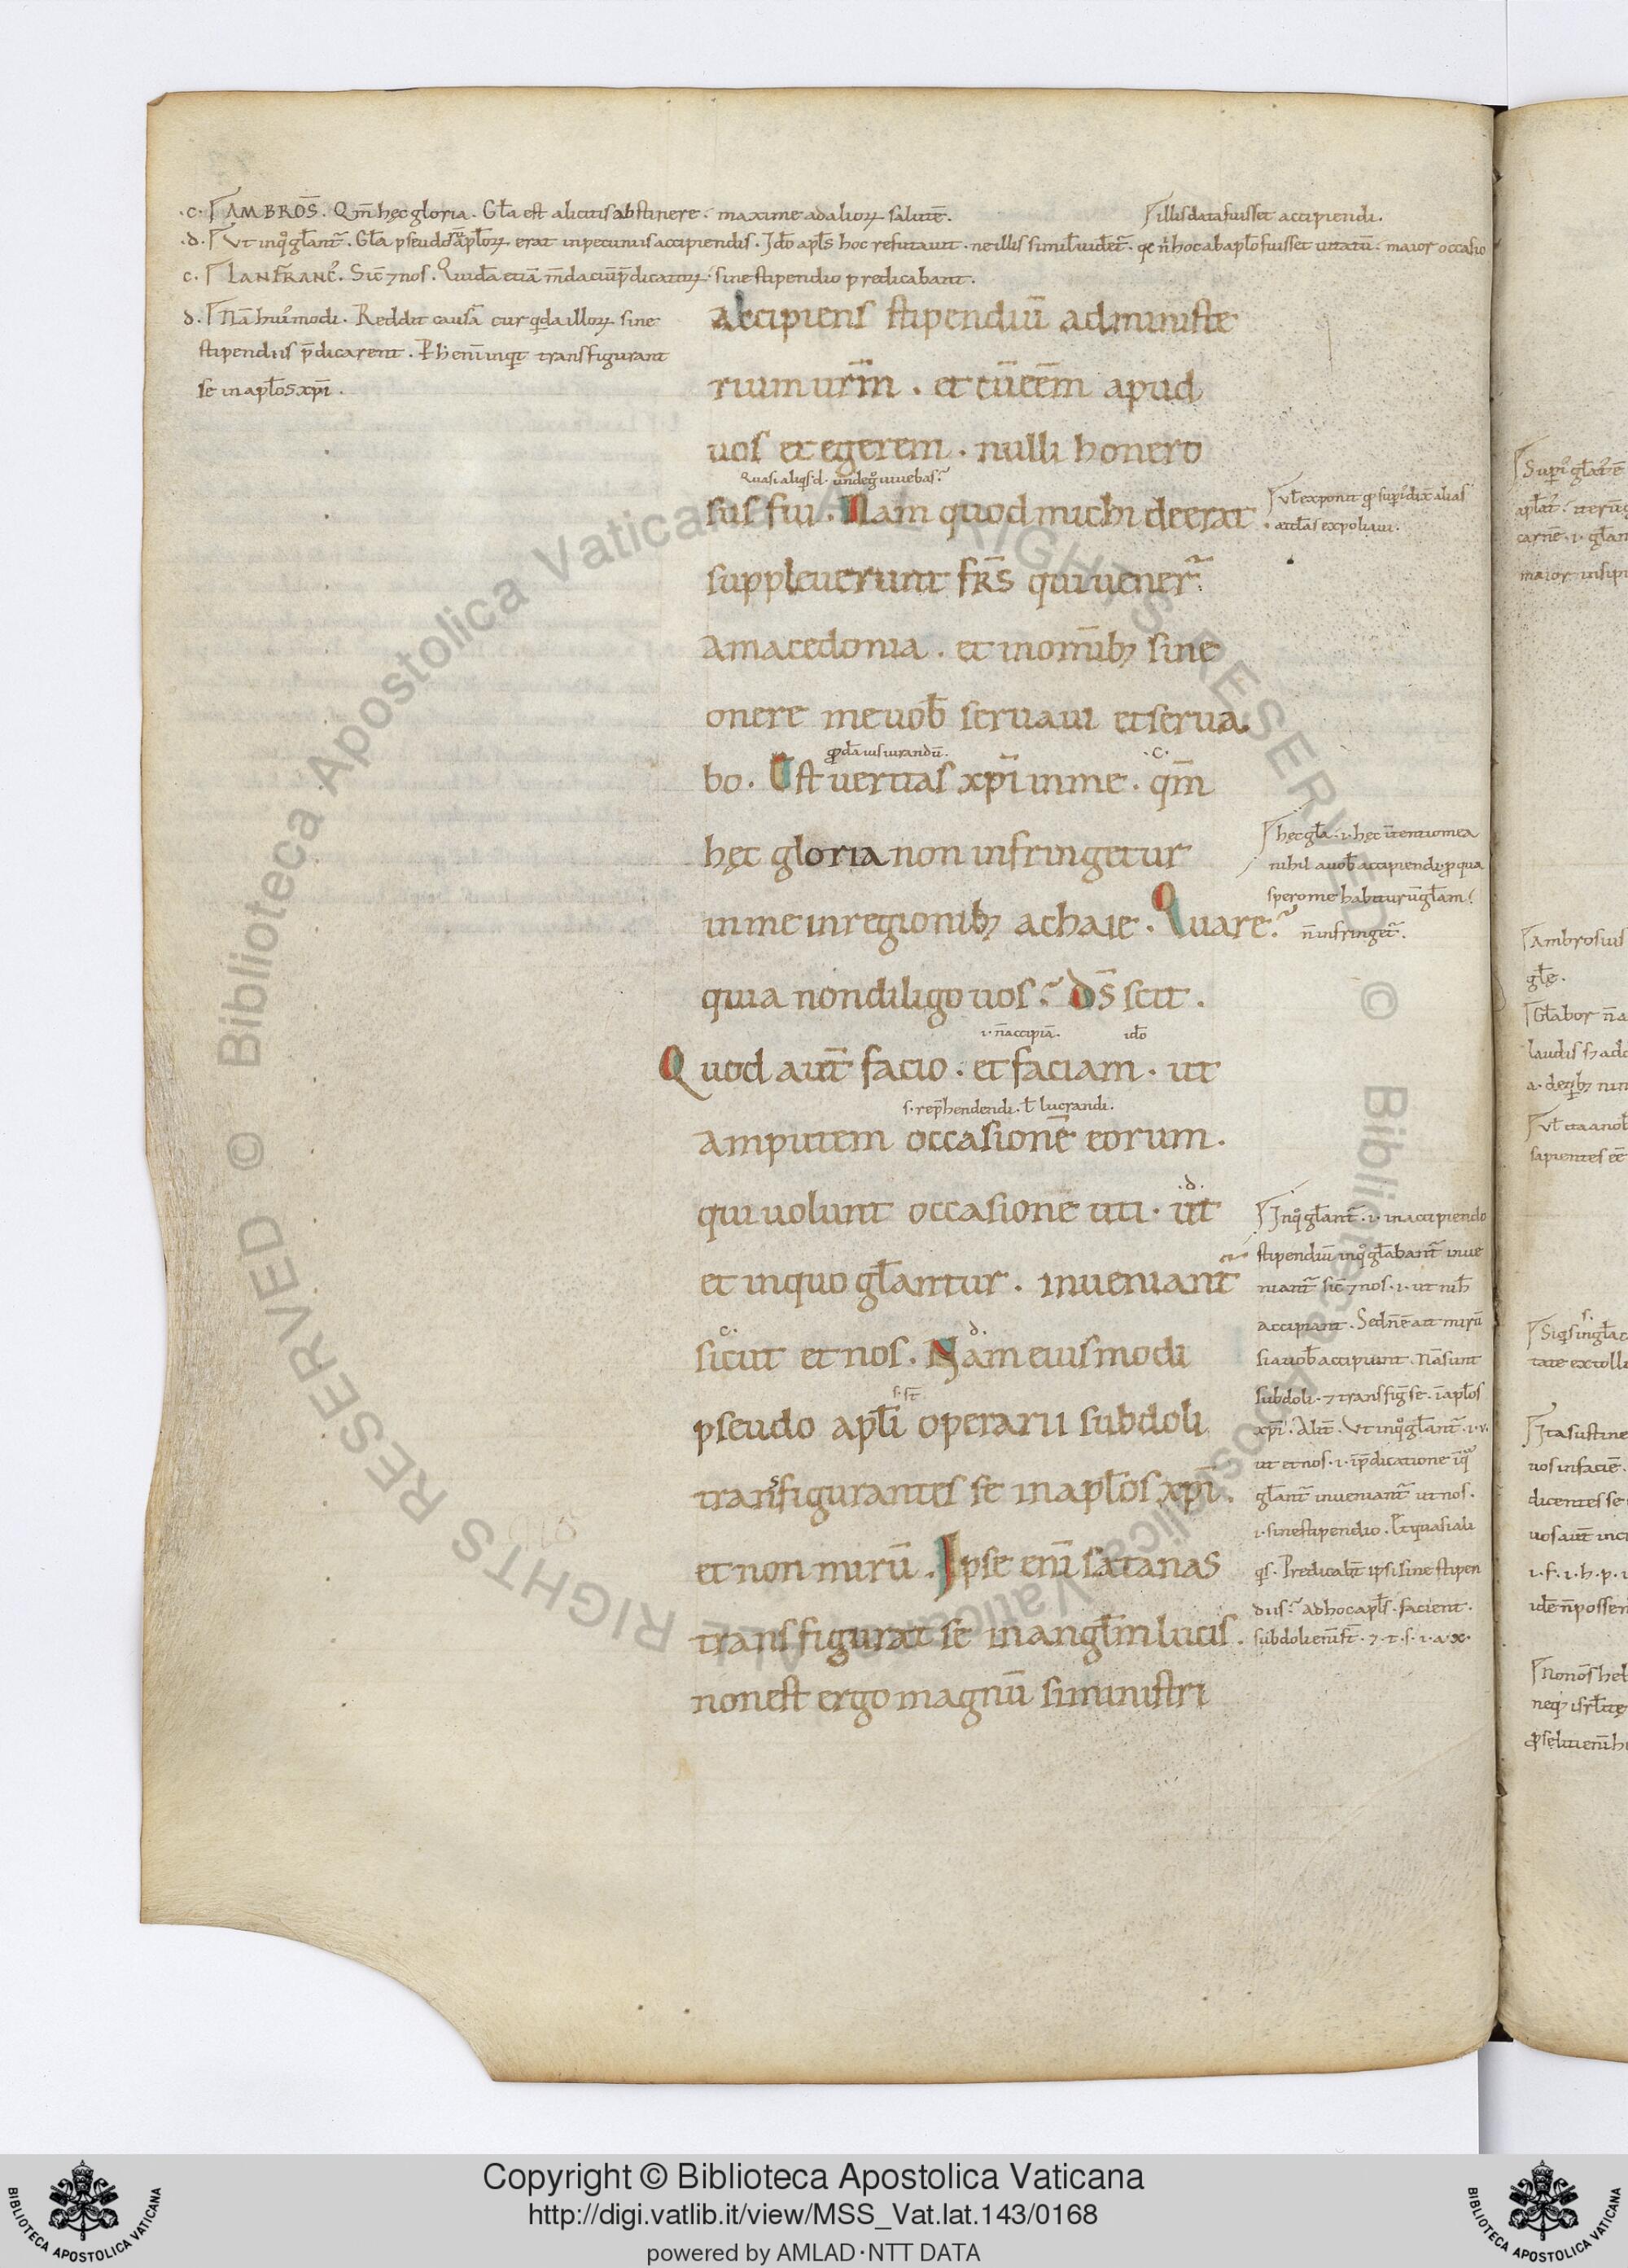 .c. AMBROS̄. Qm̄ hęc gloria. Gła est alicuius abstinere. maxime ad alioꝝ salutē.
illis data fuisset accipiendi.
.d. Vt in qͦ gl̄ant᷑. Gła pseudo apl̄oꝝ erat in pecuniis accipiendis. Ido apl̄s hoc refutauit. ne illis simil̄ uidet᷑. qc̄ n̄ hoc ab apl̄o fuisset uitatū. maior occasio
c. LANFRANC᷒. Sic̄ ⁊ nos. Quidā etiā m̄daciū p̄dicatoꝝ sine stipendio predicabant.
d. Nā hui᷒modi. Reddit causā cur qidā illoꝝ sine
stipendiis p̄dicarent. P̄h enim inqͥt transfigurant
se in apl̄os xp̄i.
Accipiens stipendiū ad ministe
rium urm̄. et cū eēm apud
uos et egerem. nulli honero
Quasi aliqͥs d. unde gͦ uiuebas.
sus fui. Nam quod michi deerat
suppleuerunt frs̄ qui uener᷑
a macedonia. et in omībꝫ sine
onere me uob̄ seruaui et serua
bo. Est ueritas xp̄i in me. qm̄
.c.
hęc gloria non infringetur
in me in regionibꝫ achaie. Quare.
quia non diligo uos. Ds̄ scit.
.i. n̄ accipiā. ido
Quod aut̄ facio. et faciam. ut
s. rep̄hendendi. ł lucrandi.
amputem occasionē eorum.
qui uolunt occasionē uti. ut
.d.
et in quo gl̄antur. inueniant
c. d.
sicut et nos. Nam eiusmodi
s. st̄
pseudo apl̄i operarii subdoli
transfigurantes se in apl̄os xp̄i.
et non mirū. Ipse enī satanas
transfigurat se in angl̄m lucis.
non est ergo magnū si ministri
ul̄ exponit qͦ supͥ᷒ dix̄ alias
ęcclās expoliaui.
hęc gła. i. hęc intentio mea
nihil a uob̄ accipiendi. ꝓ qua
spero me habiturū gl̄am.
n̄ infringet᷑.
In qͦ gl̄ant᷑. i. in accipiendo
stipendiū in qͦ gl̄abant᷑ inue
niant᷑ sic̄ ⁊ nos. i. ut nih̄
accipiant. Sed n̄ ē aut mirū
si a uob̄ accipiunt. Nā sunt
subdoli. ⁊ transfiḡ se. ī apl̄os
xp̄i. Alit᷑. Vt in qͦ gl̄ant᷑. i.
ut et nos. i. ī p̄dicatione ī qͣ
gl̄ant᷑ inueniant᷑ ut nos.
i. sine stipendio. Et quasi ali
qͥs. Predicab̄t ipsi sine stipen
diis. ad hoc apl̄s. facient.
subdoli enī st̄. ⁊. t. s. i. a. x.
Copyright © Biblioteca Apostolica Vaticana
http://digi.vatlib.it/view/MSS_Vat.lat.143/0168
powered by AMLAD·NTT DATA